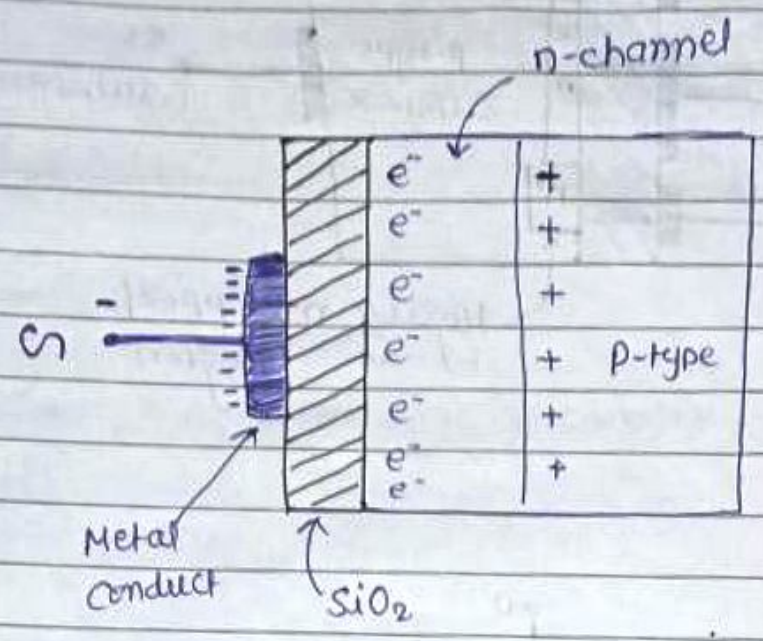 n-channel
e⁻ +
e⁻ +
e⁻ +
-
G
e⁻ + p-type
e⁻ +
e⁻ +
e⁻
Metal
conduct
SiO₂